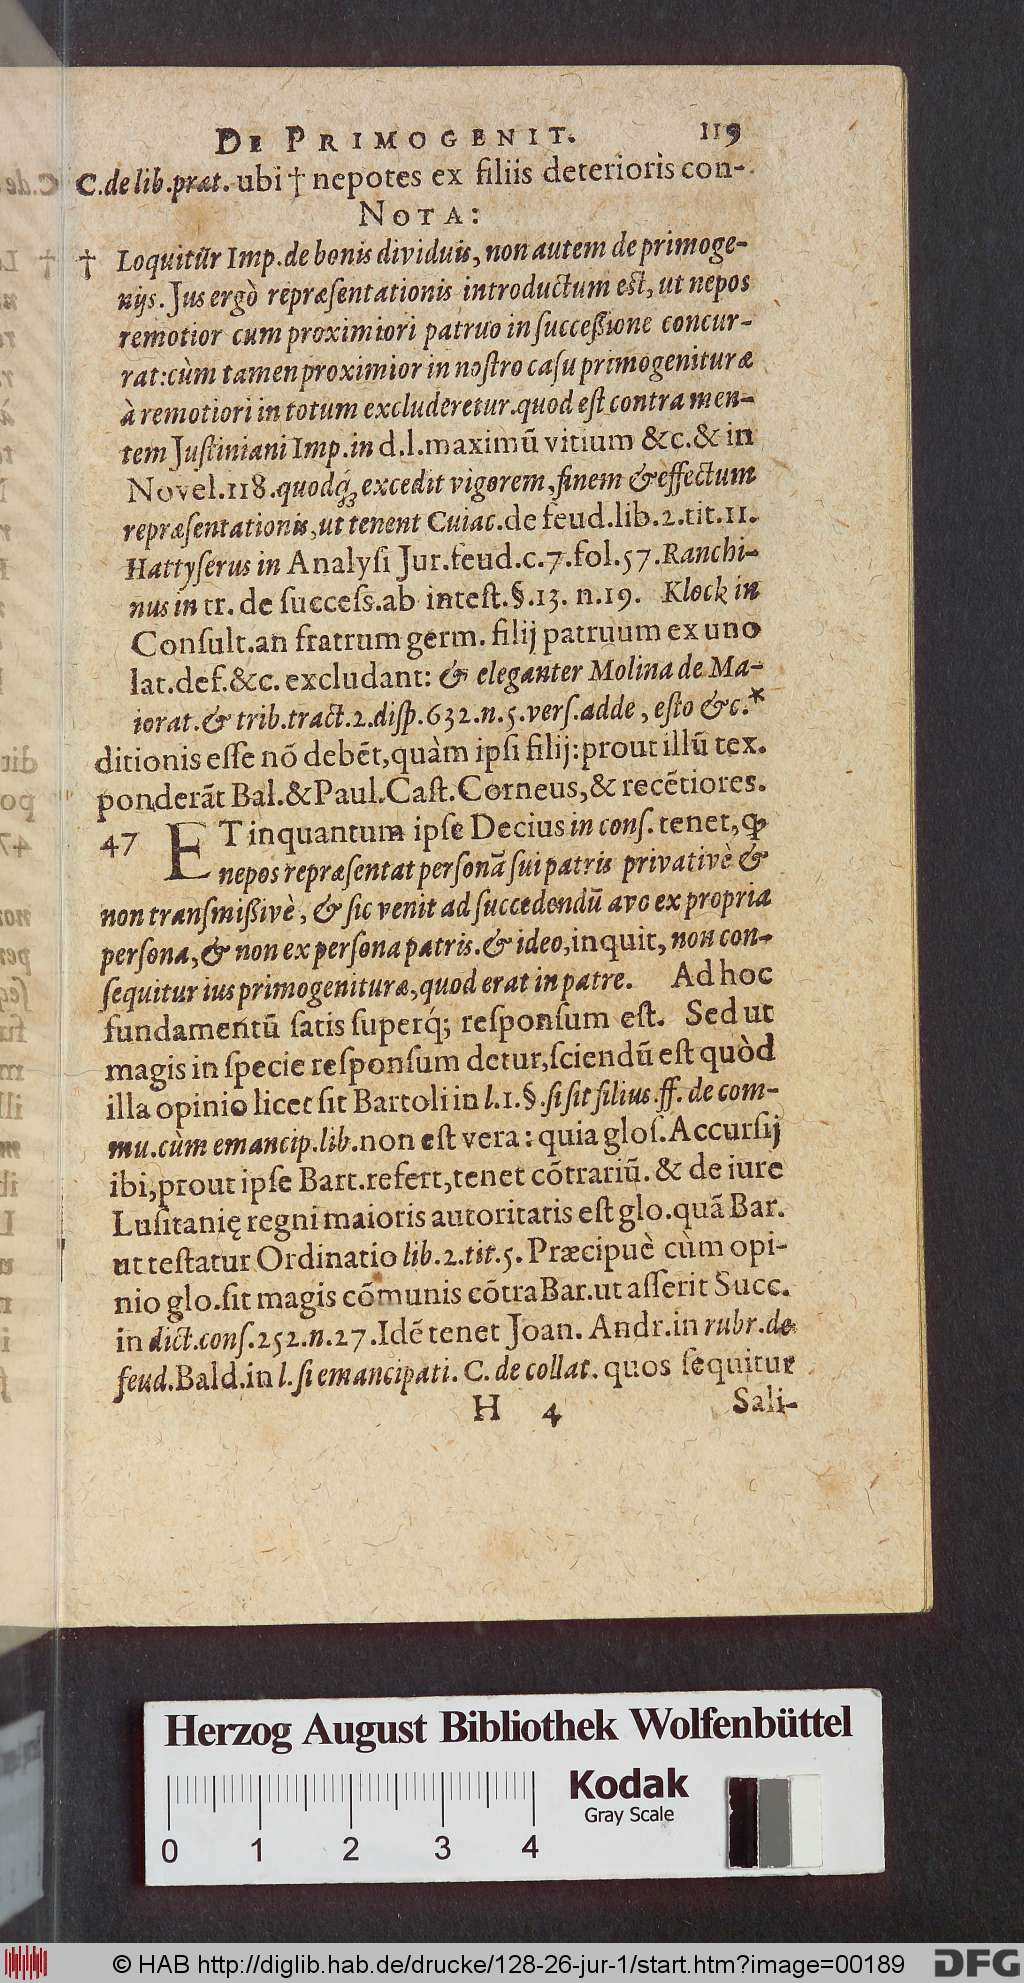 DE PRIMOGENIT. 119
C. de lib. præt. ubi † nepotes ex filiis deterioris con-
NOTA:
† Loquitũr Imp. de bonis dividuis, non autem de primoge-
nijs. Jus ergò repræſentationis introductum eſt, ut nepos
remotior cum proximiori patruo in ſucceßione concur-
rat: cùm tamen proximior in noſtro caſu primogenituræ
à remotiori in totum excluderetur. quod eſt contra men-
tem Juſtiniani Imp. in d. l. maximũ vitium &c. & in
Novel. 118. quodq́ꝫ excedit vigorem, finem & effectum
repræſentationis, ut tenent Cuiac. de feud. lib. 2. tit. 11.
Hattyſerus in Analyſi Jur. feud. c. 7. fol. 57. Ranchi-
nus in tr. de ſucceſs. ab inteſt. §. 13. n. 19. Klock in
Conſult. an fratrum germ. filij patruum ex uno
lat. def. &c. excludant: & eleganter Molina de Ma-
iorat. & trib. tract. 2. diſp. 632. n. 5. verſ. adde, eſto &c. *
ditionis eſſe nõ debẽt, quàm ipſi filij: prout illũ tex.
ponderãt Bal. & Paul. Caſt. Corneus, & recẽtiores.
47 ET inquantum ipſe Decius in conſ. tenet, ꝙ
nepos repræſentat perſonã ſui patris privativè &
non tranſmißivè, & ſic venit ad ſuccedendũ avo ex propria
perſona, & non ex perſona patris. & ideo, inquit, non con-
ſequitur ius primogenituræ, quod erat in patre. Ad hoc
fundamentũ ſatis ſuperq́; reſponſum eſt. Sed ut
magis in ſpecie reſponſum detur, ſciendũ eſt quòd
illa opinio licet ſit Bartoli in l. 1. §. ſi ſit filius. ff. de com-
mu. cùm emancip. lib. non eſt vera: quia gloſ. Accurſij
ibi, prout ipſe Bart. refert, tenet cõtrariũ. & de iure
Luſitanię regni maioris autoritatis eſt glo. quã Bar.
ut teſtatur Ordinatio lib. 2. tit. 5. Præcipuè cùm opi-
nio glo. ſit magis cõmunis cõtra Bar. ut aſſerit Succ.
in dict. conſ. 252. n. 27. Idẽ tenet Joan. Andr. in rubr. de
feud. Bald. in l. ſi emancipati. C. de collat. quos ſequitur
H 4 Sali-
Herzog August Bibliothek Wolfenbüttel
Kodak
Gray Scale
0 1 2 3 4
© HAB http://diglib.hab.de/drucke/128-26-jur-1/start.htm?image=00189
DFG